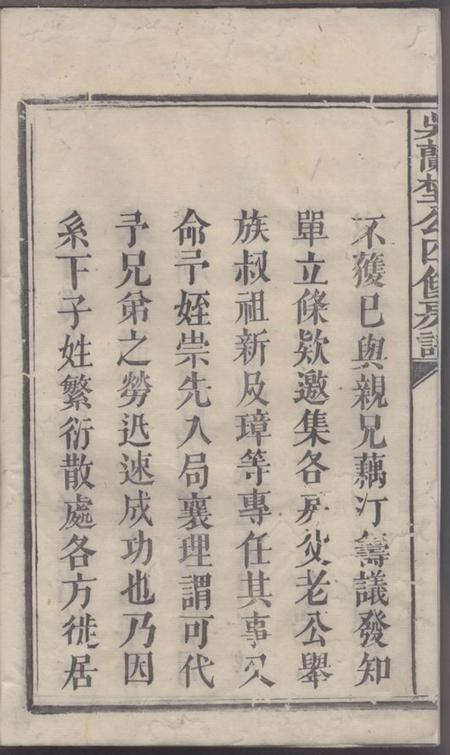 吳蘭埜公四修房譜
不獲已與親兄藕汀籌議發知
單立條欵邀集各房父老公舉
族叔祖新及璋等專任其事又
命予姪崇先入局襄理謂可代
予兄弟之勞迅速成功也乃因
系下子姓繁衍散處各方徙居